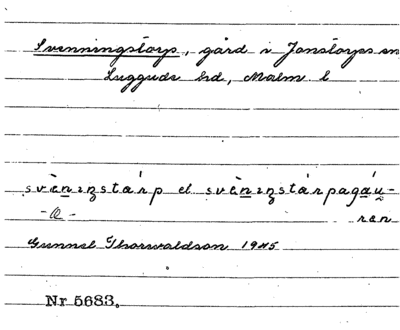 Svenningstorp, gård i Jonstorps sn
Luggude hd, Malm. l
svèniŋstárp el svèniŋstárpagáu̯-
-a- ren
Gunnel Thorwaldson 1945
Nr 5683.